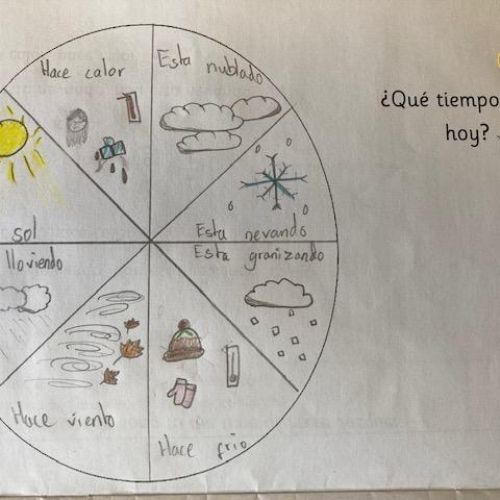 Hace calor
Esta nublado
¿Qué tiempo
hoy?
sol
Esta nevando
lloviendo
Esta granizando
Hace viento
Hace frio